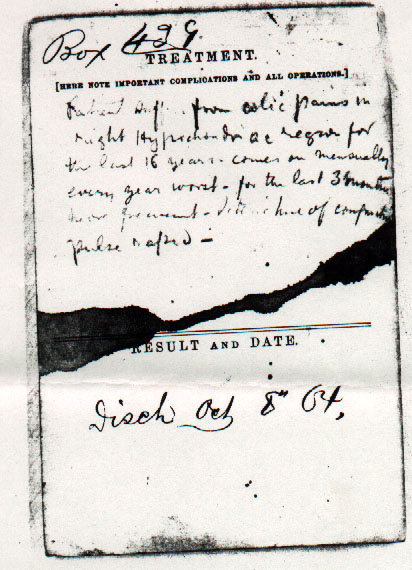 Box 429.
TREATMENT.
[HERE NOTE IMPORTANT COMPLICATIONS AND ALL OPERATIONS.]
Patient from colic pains in
right Hypochondriac region for
the last 16 years - comes on menstrually
every year worst - for the last 3 months
more frequent - of
pulse rapid -
RESULT AND DATE.
Disch Oct 8" 64.